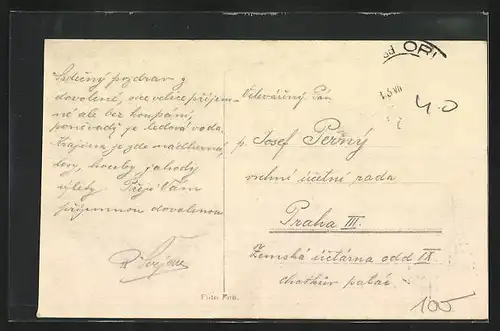 Srdečný pozdrav z
dovolené, sice velice příjem-
né ale bez koupání,
poněvadž je ledová voda.
Krajina je zde nádherná,
lesy, houby jahody
výlety Přeji Vám
příjemnou dovolenou
Foto Fon.
Velevážený Pán
p. Josef Perný
vrchní účetní rada
Praha III.
Zemská účtárna odd IX
palác
ORL
4.0
105